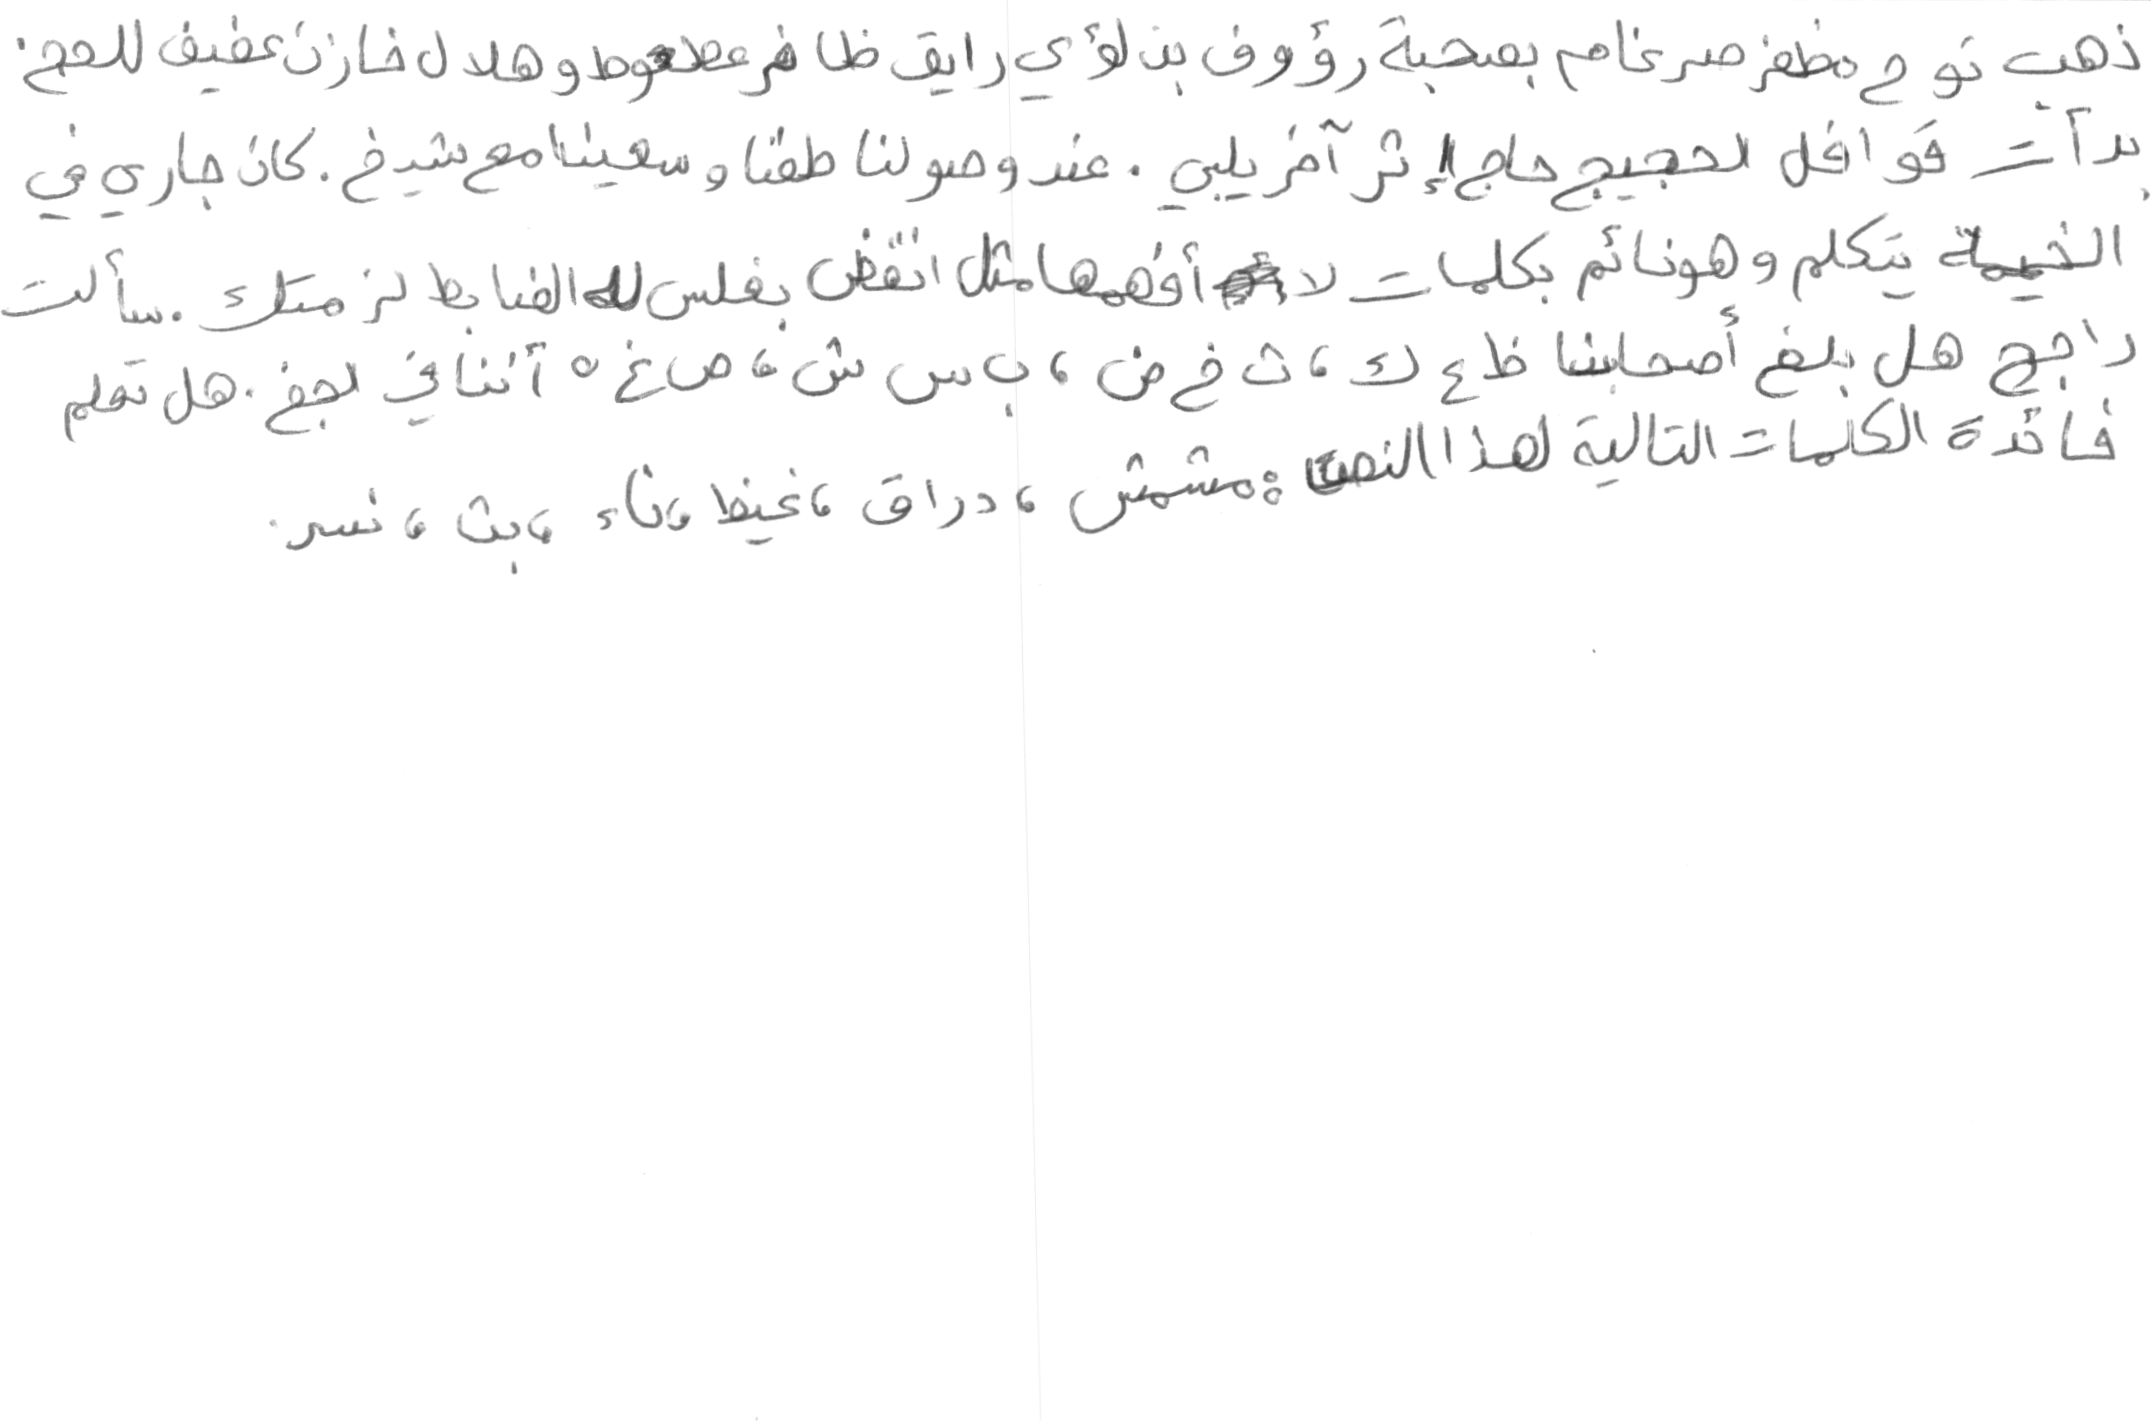 ذهب نوح مظفر ضرغام بصحبة رؤوف بن لؤي رايق ظافر عطعوط وهلال خازن عفيف للحج.
بدأت قوافل الحجيج حاج إثر آخر يلبي. عند وصولنا طفنا وسعينا مع شيخ. كان جاري في
الخيمة يتكلم وهو نائم بكلمات لا أفهمها مثل انقض بغلس الضابط لزمتك. سألت
راجح هل بلغ أصحابنا ظ ع ك، ث خ ض، ب س ش، ص غ ه أننا في لجف. هل تعلم
فائدة الكلمات التالية لهذا النص: مشمش، دراق، غيظ، ناء، بث، نسر.